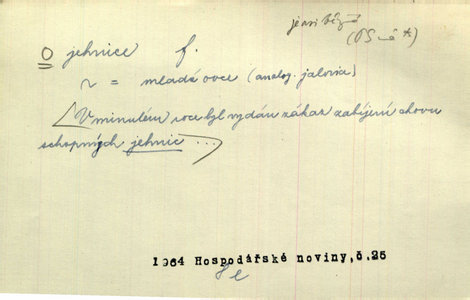 jehnice f.
= mladá ovce (analog. jalovice)
V minulém roce byl vydán zákaz zabíjení chovu
schopných jehnic ...
1964 Hospodářské noviny,č.25